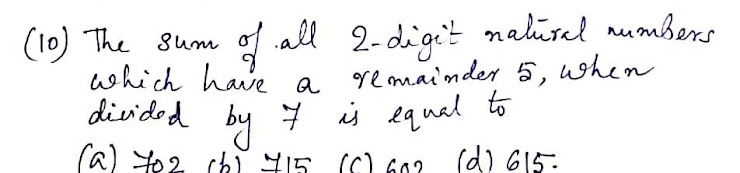 (10) The sum of all 2-digit natural numbers
which have a remainder 5, when
divided by 7 is equal to
(a) 702 (b) 715 (c) 602 (d) 615.